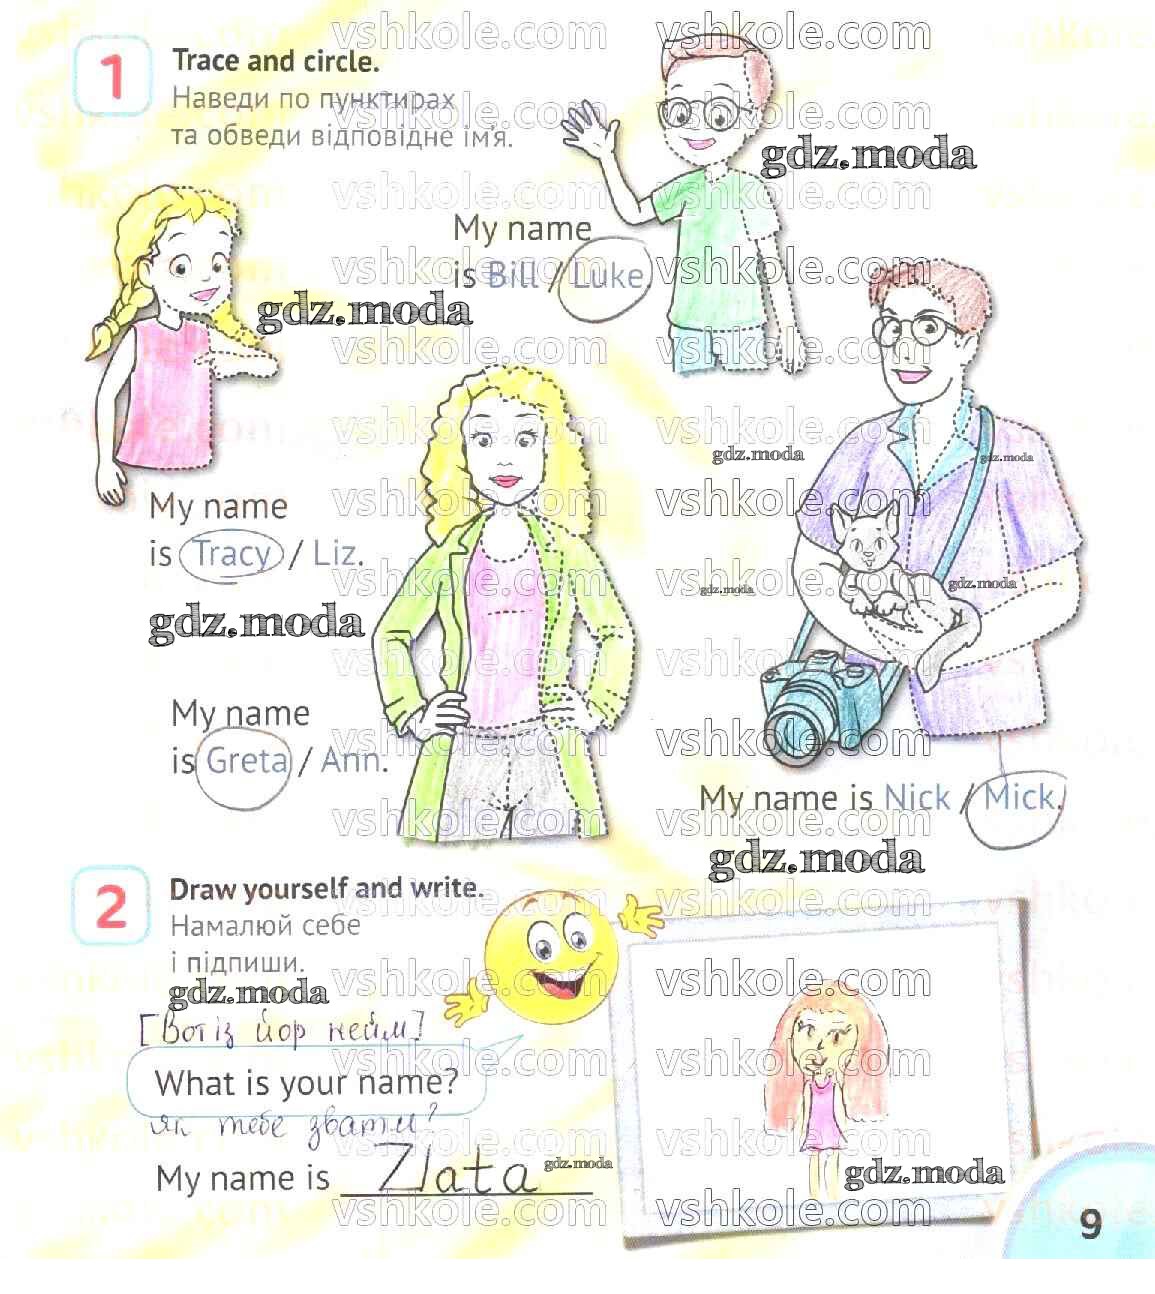 1
Trace and circle.
Наведи по пунктирах
та обведи відповідне ім'я.
My name
is Bill / Luke.
My name
is Tracy / Liz.
My name
is Greta / Ann.
My name is Nick / Mick.
2
Draw yourself and write.
Намалюй себе
і підпиши.
[Вот із йор нейм]
What is your name?
як тебе звати?
My name is Zlata
9
vshkole.com
gdz.moda